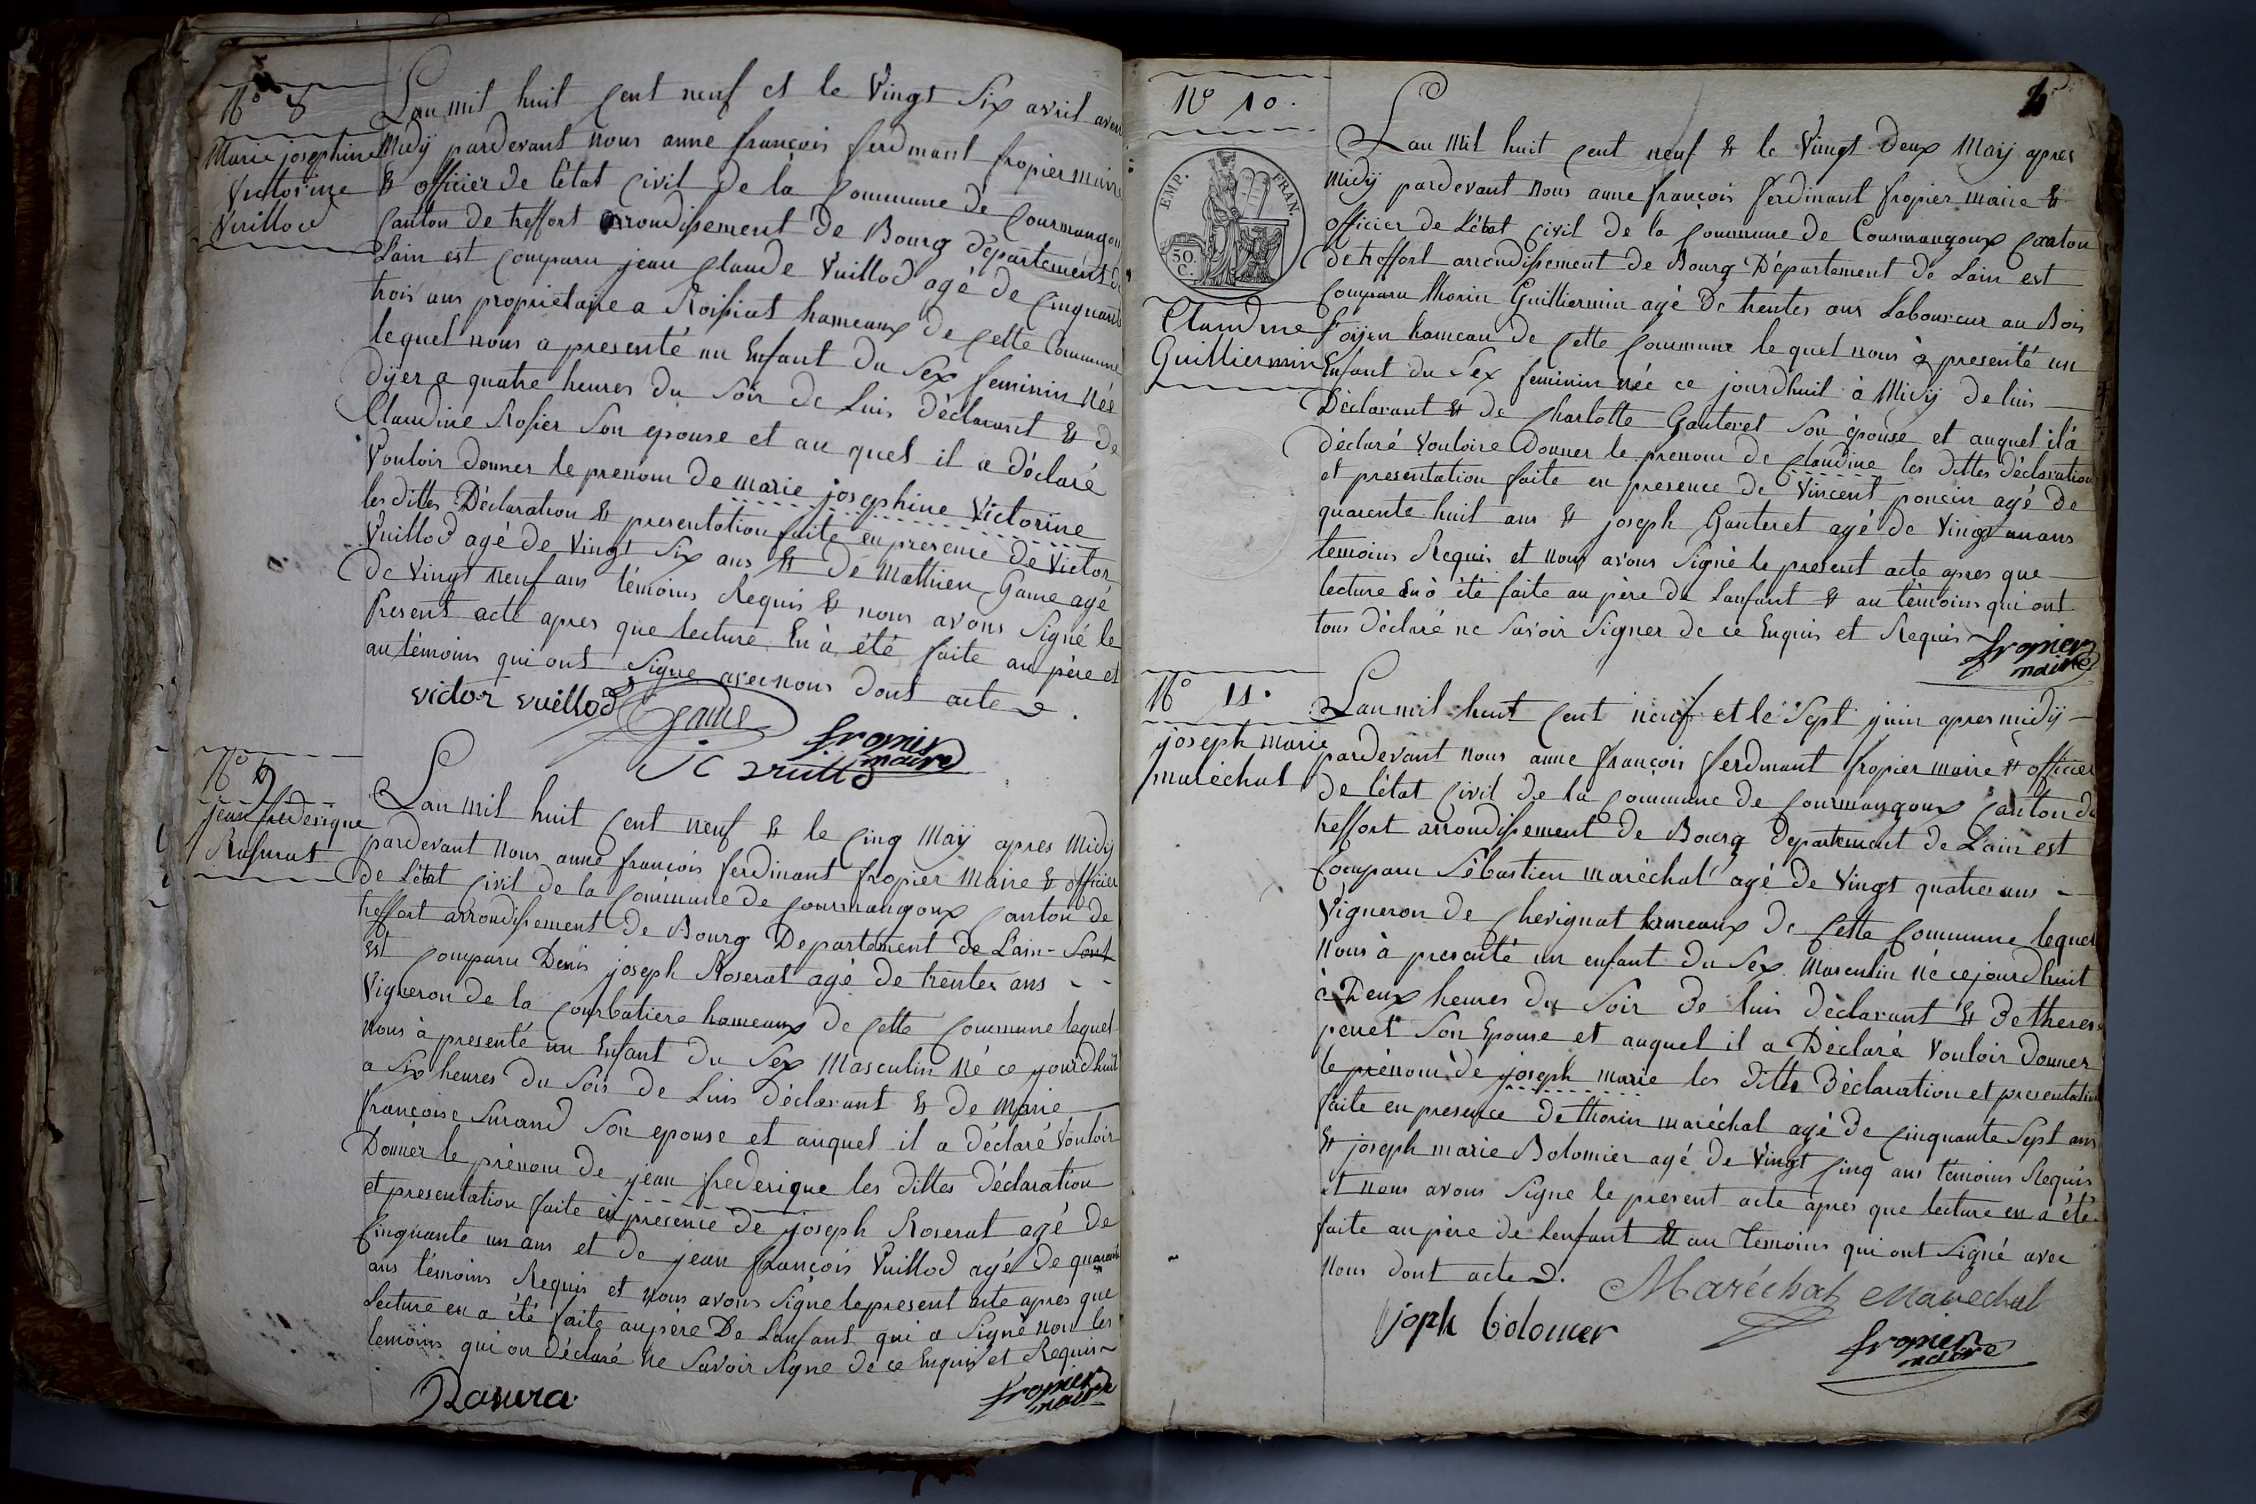 N° 8
Marie josephine
Victorine
Vuillod
Lan mil huit Cent neuf et le Vingt Six avril avant
Midÿ pardevant nous anne françois ferdinant fropier maire
& officier de L'état Civil de la Commune de Courmangoux
Canton de treffort arrondissement de Bourg département de
Lain est Comparu jean Claude Vuillod agé de Cinquante
trois ans propriétaire a Roissiat hameaux de Cette Commune
lequel nous a presenté un Enfant du Sex feminin Née
dÿer a quatre heures du Soir de Luis déclarant & de
Claudine Rosier Son epouse et au quel il a déclaré
Vouloir donner le prénom de marie josephine Victorine
les dittes Déclaration & presentation faite en presence de Victor
Vuillod agé de Vingt Six ans & de Mathieu Game agé
de Vingt neuf ans témoins Requis & nous avons Signé le
Present acte apres que lecture En à été faite au père et
au témoins qui ont Signe avec nous dont acte
victor vuillod Game
fropier
maire
J C vuillod
N° 9
jean frederique
Roserat
Lan mil huit Cent neuf & le Cinq Maÿ apres Midÿ
pardevant nous anne françois ferdinant fropier Maire & officier
de L'état Civil de la Commune de Courmangoux Canton de
treffort arrondissement de Bourg Departement de Lain - Sont
Est Comparu Denis joseph Roserat agé de trentes ans
Vigneron de la Courbatiere hameaux de Cette Commune lequel
nous à presenté un Enfant du Sex Masculin Né ce jourdhuit
a Six heures du Soir de Luis déclarant & de Marie
françoise Surand Son epouse et auquel il a déclaré Vouloir
Donner le prénom de jean frederique les dittes déclaration
et presentation faite en presence de joseph Roserat agé de
Cinquante un ans et de jean françois Vuillod agé de quarante
ans témoins Requis et nous avons Signé le present acte apres que
Lecture en a été faite au père De Lanfant qui a Signé non les
temoins qui on déclaré Ne Savoir Signe de ce Enquis et Requis
Rosera
fropier
maire
N° 10.
EMP. FRAN.
50.
C.
Claudine
Guilliermin
Lan Mil huit Cent neuf & le Vingt deux Maÿ apres
midÿ pardevant nous anne françois ferdinant fropier maire &
officier de L'état Civil de la Commune de Courmangoux Canton
de treffort arrondissement de Bourg Département de Lain est
Comparu thorin Guilliermin agé De trentes ans Laboureur au Bois
foÿen hameau de Cette Commune le quel nous à presenté un
Enfant du Sex feminin née ce jourdhuit à Midÿ de luis
Déclarant & de Charlotte Gauteret Son épouse et auquel il a
déclaré Vouloire Donner le prenom de Claudine les dittes déclaration
et presentation faite en presence de Vincent poncin agé de
quarente huit ans & joseph Gauteret agé de Vingt un ans
temoins Requis et nous avons Signé le present acte apres que
lecture En à été faite au père de Lanfant & au témoins qui ont
tous déclaré ne Savoir Signer de ce Enquis et Requis
fropier
maire
N° 11.
joseph marie
maréchal
Lan mil huit Cent neuf et le Sept juin apres midÿ
pardevant nous anne françois ferdinant fropier maire & officier
de L'état Civil de la Commune de Courmangoux Canton de
treffort arrondissement de Bourg departement de Lain est
Comparu Sébastien maréchal agé de Vingt quatres ans
Vigneron de Chevignat hameaux de Cette Commune lequel
nous à presenté un enfant du Sex Masculin né cejourdhuit
à Deux heures du Soir de luis déclarant & de therese
penet Son Epouse et auquel il a Déclaré Vouloir donner
le prénom de joseph marie les ditte déclaration et presentation
faite en presence de thorin maréchal agé de Cinquante Sept ans
& joseph marie Bolomier agé de Vingt Cinq ans temoins Requis
et nous avons Signe le present acte apres que lecture en a été
faite au père de lenfant & au temoins qui ont Signé avec
Nous dont acte.
Maréchal Marechal
joph bolomier
fropier
maire